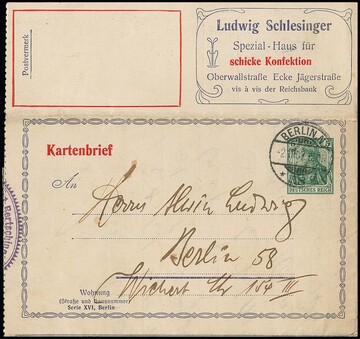 Postvermerk
Ludwig Schlesinger
Spezial-Haus für
schicke Konfektion
Oberwallstraße Ecke Jägerstraße
vis à vis der Reichsbank
Kartenbrief
BERLIN
DEUTSCHES REICH
An
Herrn Alwin Ludwig
Berlin 58
Wichert Str 154 III
Wohnung
(Straße und Hausnummer)
Serie XVI, Berlin